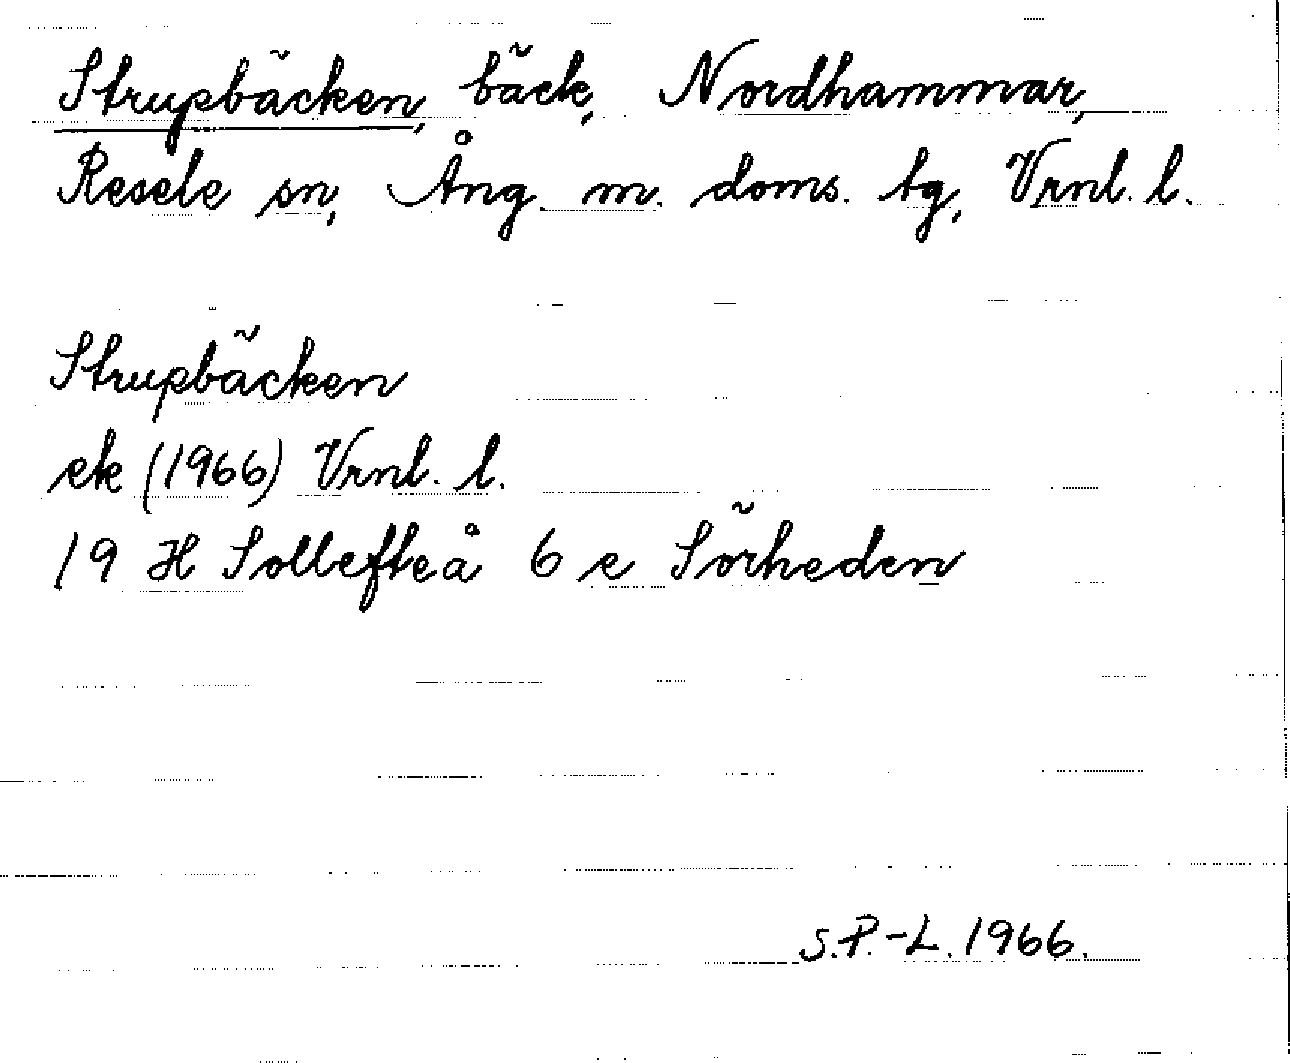 Strupbäcken, bäck, Nordhammar,
Resele sn, Ång. m. doms. tg, Vrnl. l.
Strupbäcken
ek (1966) Vrnl. l.
19 H Sollefteå 6 e Sörheden
S.P.-L. 1966.